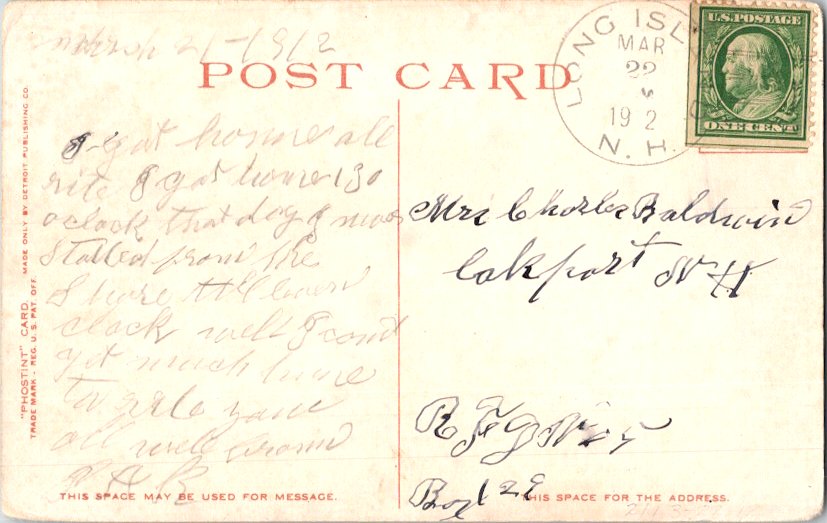 March 21-1912
POST CARD
LONG ISL
MAR
22
192
N.H.
U.S. POSTAGE
ONE CENT
I got home all
rite I got home 130
oclock that day I was
Stalled from the
Shore till leven
clock well I cant
get much time
to rite
all well from
Mrs Charles Baldwin
Lakport N H
R F D No 5
Box 29
THIS SPACE MAY BE USED FOR MESSAGE.
THIS SPACE FOR THE ADDRESS.
"PHOSTINT" CARD. MADE ONLY BY DETROIT PUBLISHING CO.
TRADE MARK - REG. U. S. PAT. OFF.